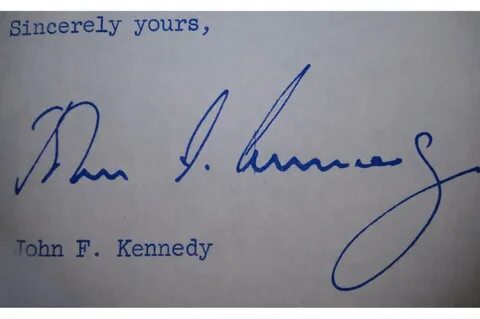 Sincerely yours,
John F. Kennedy
John F. Kennedy